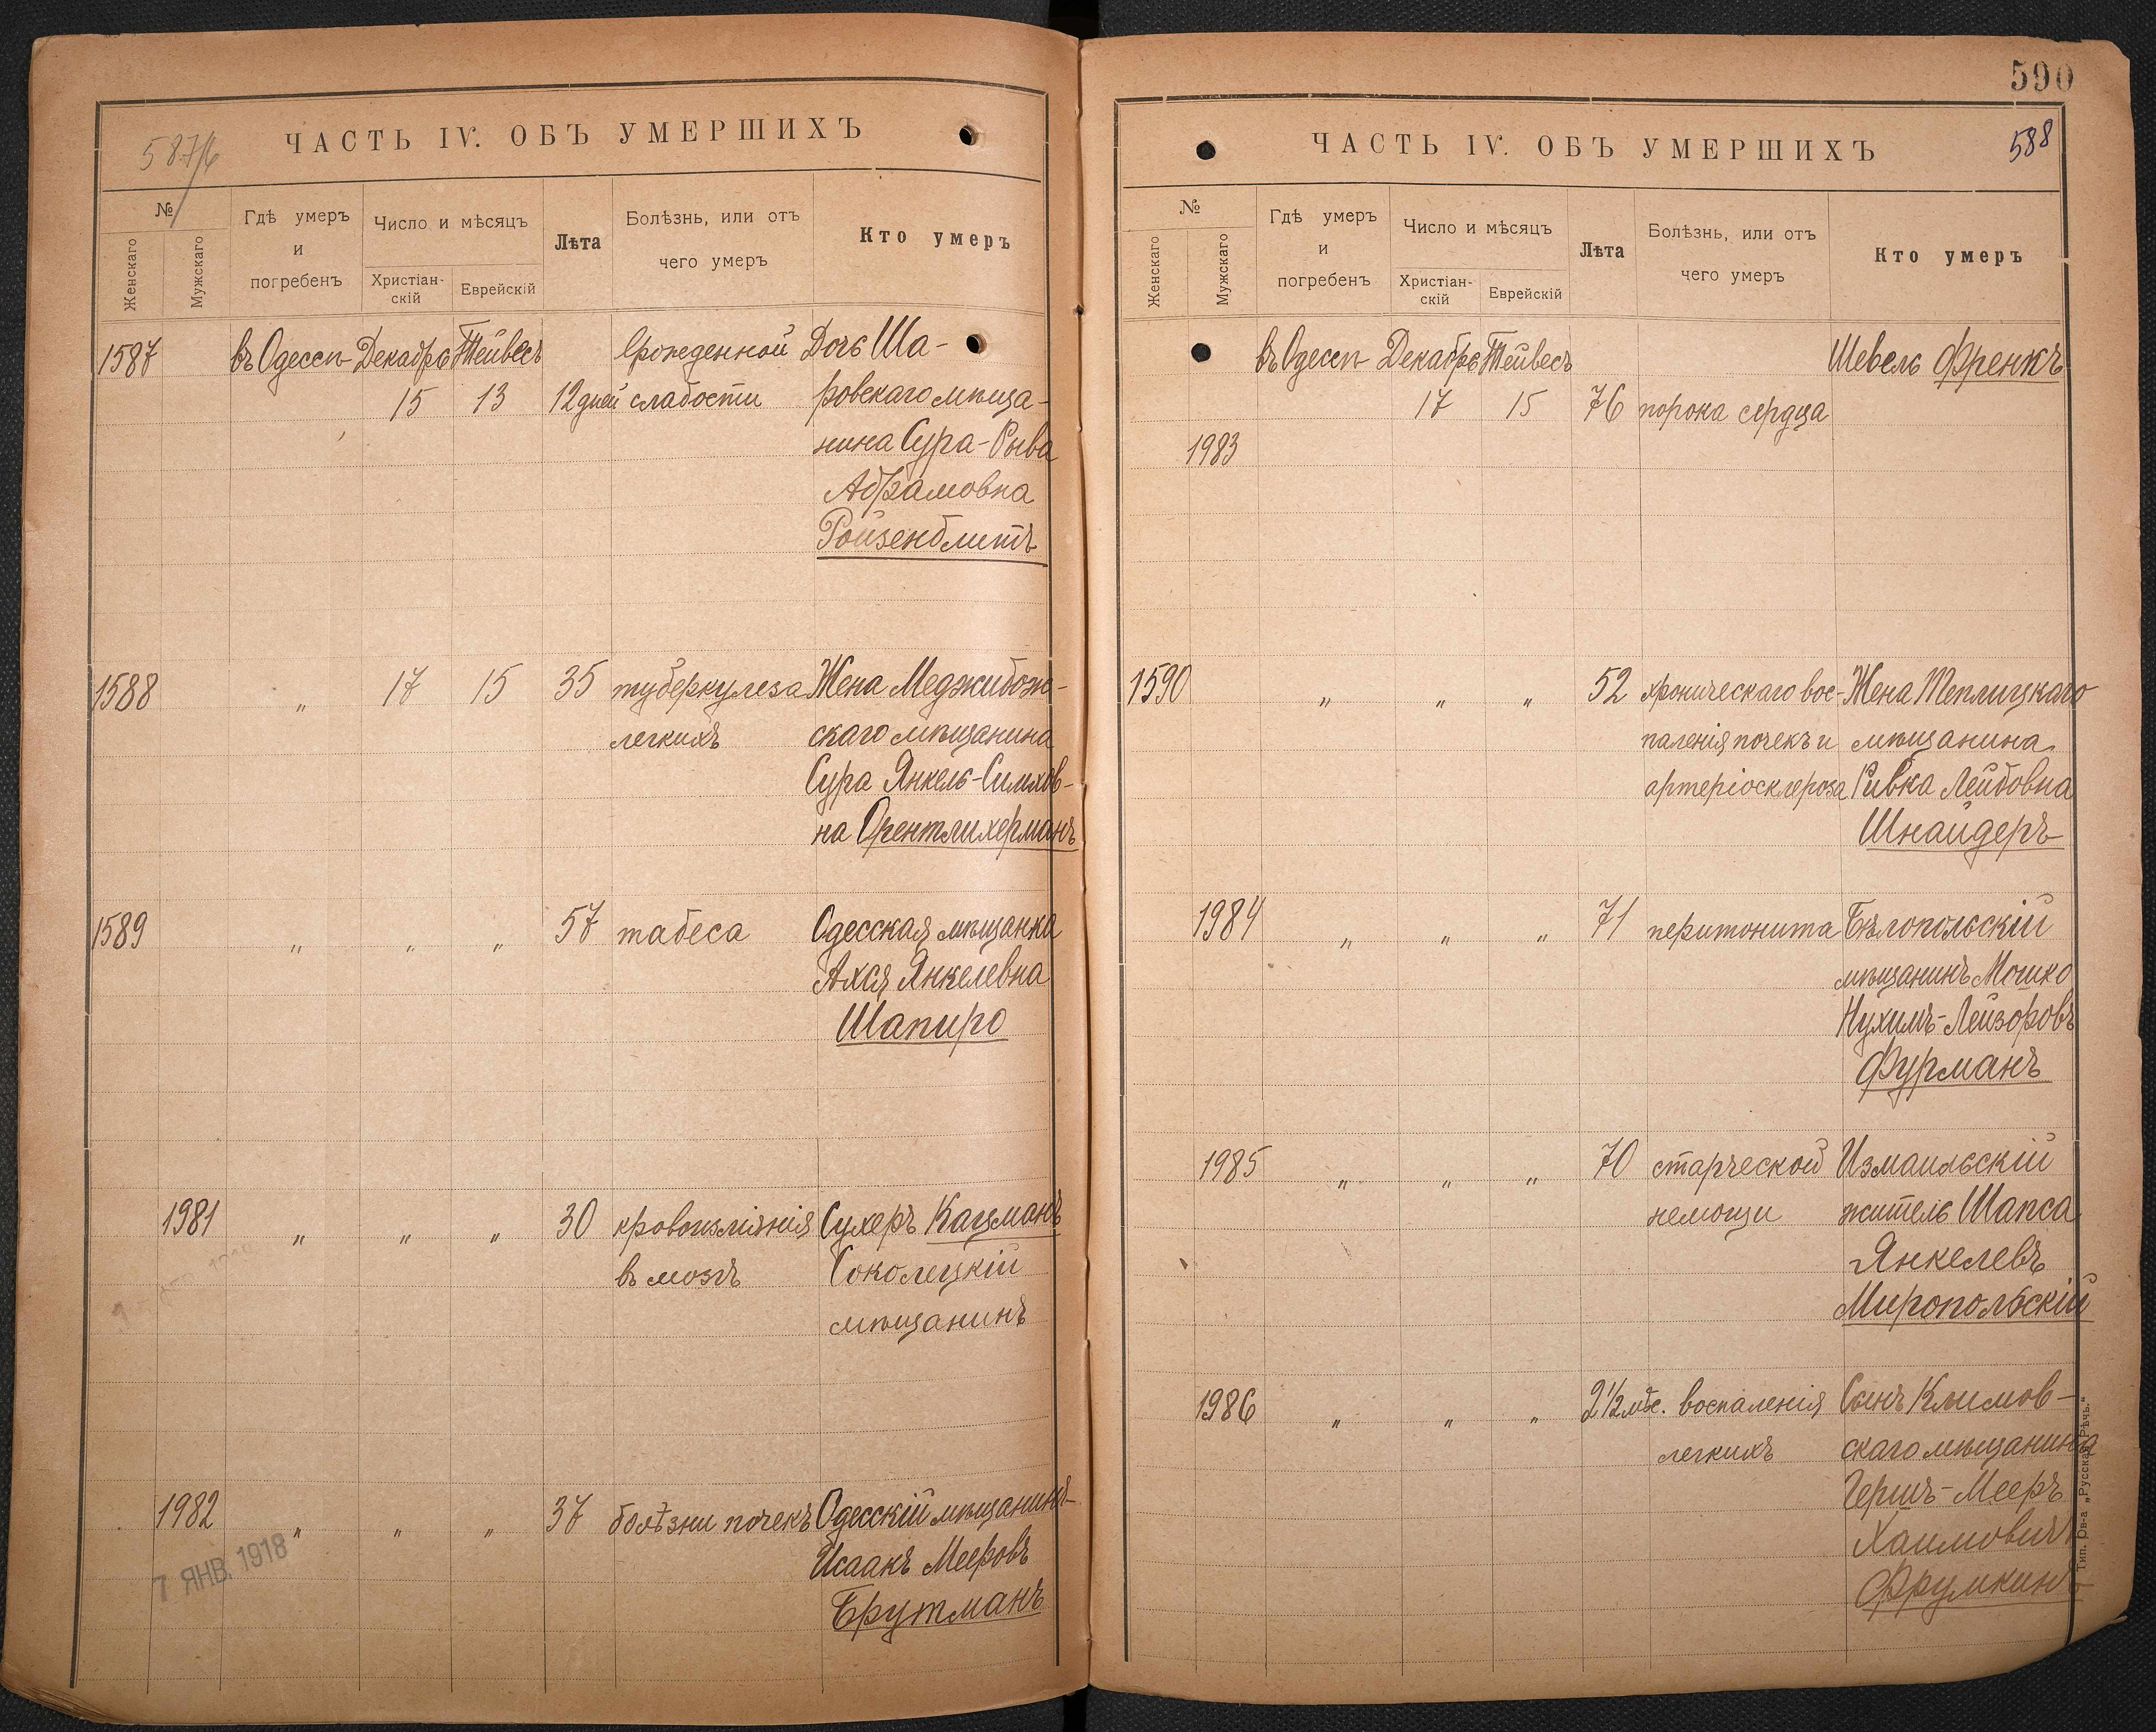 587/6
ЧАСТЬ IV. ОБЪ УМЕРШИХЪ
№
Женскаго
Мужскаго
Гдѣ умеръ
и
погребенъ
Число и мѣсяцъ
Христіан-
скій
Еврейскій
Лѣта
Болѣзнь, или отъ
чего умеръ
Кто умеръ
1587 въ Одессѣ Декабрь Тейвесъ врожденной Дочь Ша-
15 13 12 дней слабости ровскаго мѣща-
нина Сура-Рива
Абрамовна
Ройзенблитъ
1588 " 17 15 35 туберкулеза Жена Меджибож-
легкихъ скаго мѣщанина
Сура Янкель-Симхов-
на Орентлихерманъ
1589 " " " 57 табеса Одесская мѣщанка
Ахся Янкелевна
Шапиро
1981 " " " 30 кровоизліянія Сухеръ Кацманъ
въ мозгъ Соколецкій
мѣщанинъ
1982 " " " 37 болѣзни почекъ Одесскій мѣщанинъ
Исаакъ Мееровъ
Брутманъ
7 ЯНВ. 1918
590
ЧАСТЬ IV. ОБЪ УМЕРШИХЪ
588
№
Женскаго
Мужскаго
Гдѣ умеръ
и
погребенъ
Число и мѣсяцъ
Христіан-
скій
Еврейскій
Лѣта
Болѣзнь, или отъ
чего умеръ
Кто умеръ
въ Одессѣ Декабрь Тейвесъ Шевель Френкъ
17 15 76 порока сердца
1983
1590 " " " 52 хроническаго вос- Жена Теплицкаго
паленія почекъ и мѣщанина
артеріосклероза Ривка Лейбовна
Шнайдеръ
1984 " " " 71 перитонита Бѣлопольскій
мѣщанинъ Мошко
Нухимъ-Лейзоровъ
Фурманъ
1985 " " " 70 старческой Измаильскій
немощи житель Шапса
Янкелевъ
Миропольскій
1986 " " " 2½ мѣс. воспаленія Сынъ Климов-
легкихъ скаго мѣщанина
Гершъ-Мееръ
Хаимовичъ
Фрумкинъ
Тип. Ов-а „Русская Рѣчь."